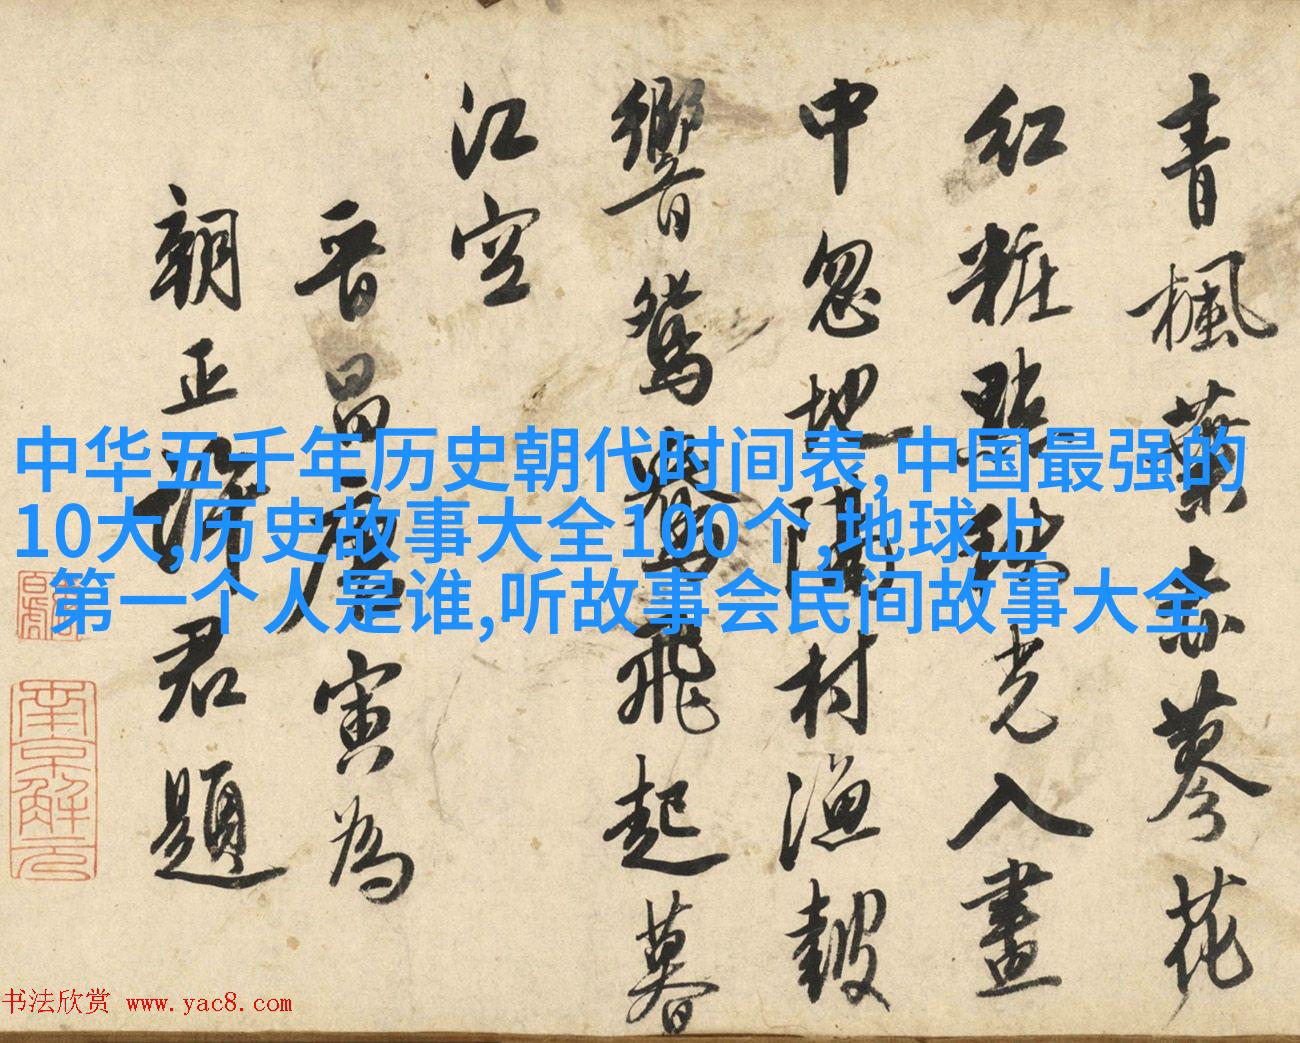 青楓葉赤蓼花
红粧點光入畫
中忽地隔村漁鼓
響鴛鴦飛起暮
江空
晋昌唐寅為
朝正許君題
南京解元
中华五千年历史朝代时间表,中国最强的
10大,历史故事大全100个,地球上
第一个人是谁,听故事会民间故事大全
书法欣赏 www.yac8.com